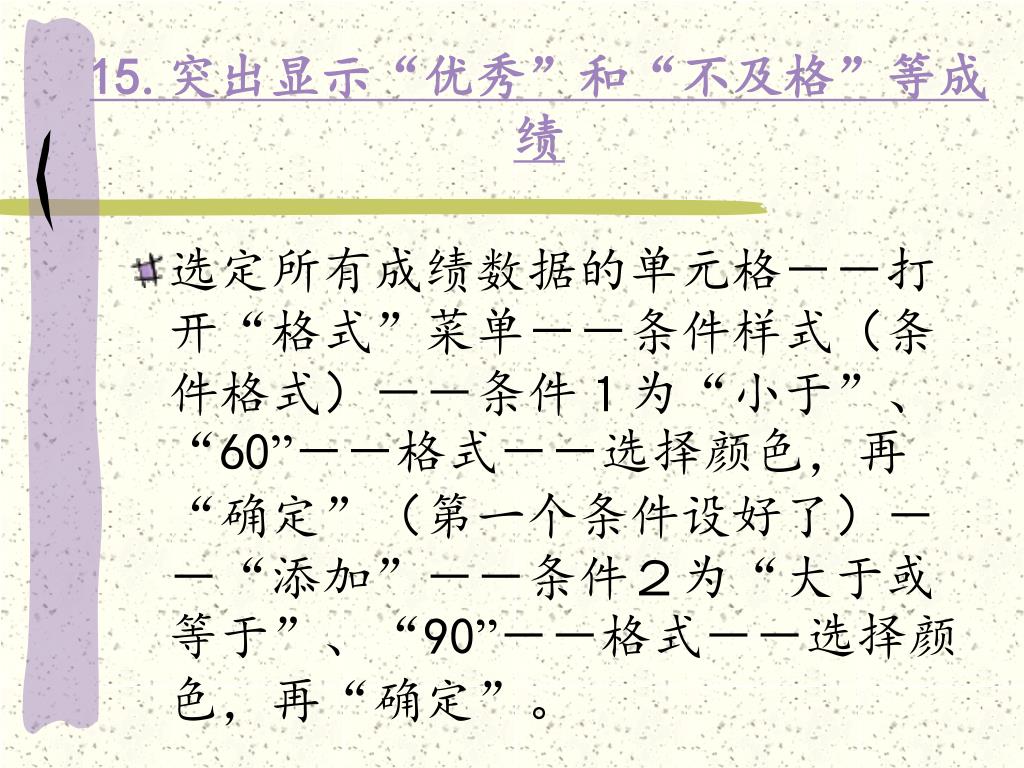 15.突出显示“优秀”和“不及格”等成
绩
选定所有成绩数据的单元格－－打
开“格式”菜单－－条件样式（条
件格式）－－条件１为“小于”、
“60”－－格式－－选择颜色，再
“确定”（第一个条件设好了）－
－“添加”－－条件２为“大于或
等于”、“90”－－格式－－选择颜
色，再“确定”。